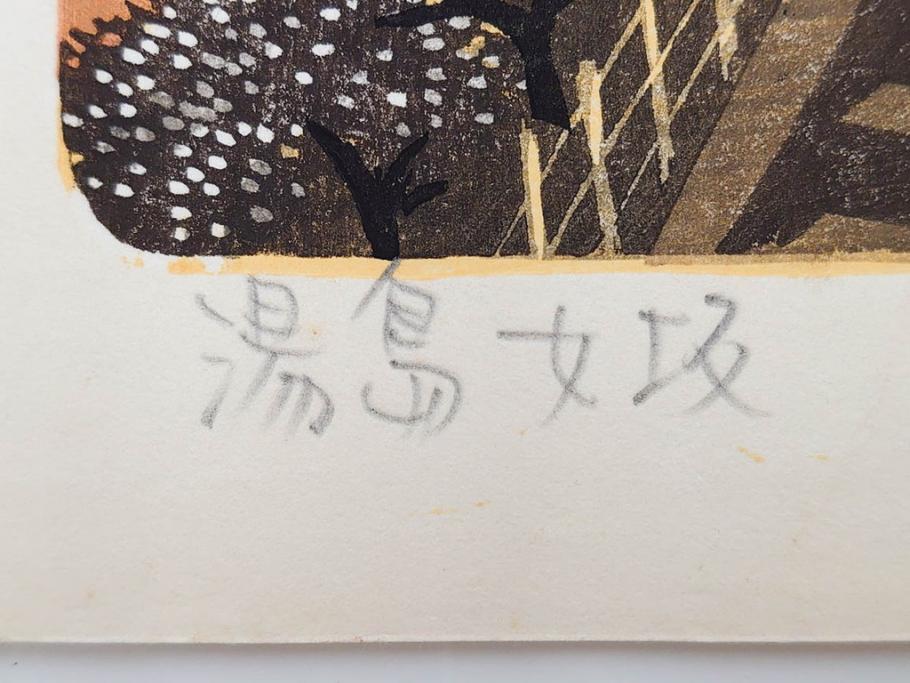 湯島女坂